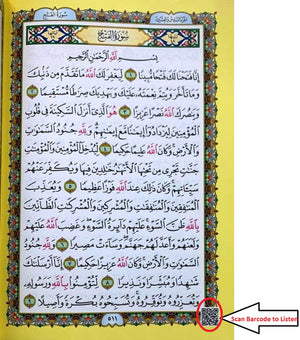 الجزء السادس والعشرون
سورة الفتح
سُورَةُ الفَتْحِ
بِسْمِ ٱللَّهِ ٱلرَّحْمَٰنِ ٱلرَّحِيمِ
إِنَّا فَتَحْنَا لَكَ فَتْحًا مُّبِينًا ١ لِّيَغْفِرَ لَكَ ٱللَّهُ مَا تَقَدَّمَ مِن ذَنۢبِكَ
وَمَا تَأَخَّرَ وَيُتِمَّ نِعْمَتَهُۥ عَلَيْكَ وَيَهْدِيَكَ صِرَٰطًا مُّسْتَقِيمًا ٢
وَيَنصُرَكَ ٱللَّهُ نَصْرًا عَزِيزًا ٣ هُوَ ٱلَّذِىٓ أَنزَلَ ٱلسَّكِينَةَ فِى قُلُوبِ
ٱلْمُؤْمِنِينَ لِيَزْدَادُوٓا۟ إِيمَٰنًا مَّعَ إِيمَٰنِهِمْ وَلِلَّهِ جُنُودُ ٱلسَّمَٰوَٰتِ
وَٱلْأَرْضِ وَكَانَ ٱللَّهُ عَلِيمًا حَكِيمًا ٤ لِّيُدْخِلَ ٱلْمُؤْمِنِينَ وَٱلْمُؤْمِنَٰتِ
جَنَّٰتٍ تَجْرِى مِن تَحْتِهَا ٱلْأَنْهَٰرُ خَٰلِدِينَ فِيهَا وَيُكَفِّرَ عَنْهُمْ
سَيِّـَٔاتِهِمْ وَكَانَ ذَٰلِكَ عِندَ ٱللَّهِ فَوْزًا عَظِيمًا ٥ وَيُعَذِّبَ
ٱلْمُنَٰفِقِينَ وَٱلْمُنَٰفِقَٰتِ وَٱلْمُشْرِكِينَ وَٱلْمُشْرِكَٰتِ ٱلظَّآنِّينَ
بِٱللَّهِ ظَنَّ ٱلسَّوْءِ عَلَيْهِمْ دَآئِرَةُ ٱلسَّوْءِ وَغَضِبَ ٱللَّهُ عَلَيْهِمْ
وَلَعَنَهُمْ وَأَعَدَّ لَهُمْ جَهَنَّمَ وَسَآءَتْ مَصِيرًا ٦ وَلِلَّهِ جُنُودُ
ٱلسَّمَٰوَٰتِ وَٱلْأَرْضِ وَكَانَ ٱللَّهُ عَزِيزًا حَكِيمًا ٧ إِنَّآ أَرْسَلْنَٰكَ
شَٰهِدًا وَمُبَشِّرًا وَنَذِيرًا ٨ لِّتُؤْمِنُوا۟ بِٱللَّهِ وَرَسُولِهِۦ
وَتُعَزِّرُوهُ وَتُوَقِّرُوهُ وَتُسَبِّحُوهُ بُكْرَةً وَأَصِيلًا ٩
٥١١
Scan Barcode to Listen